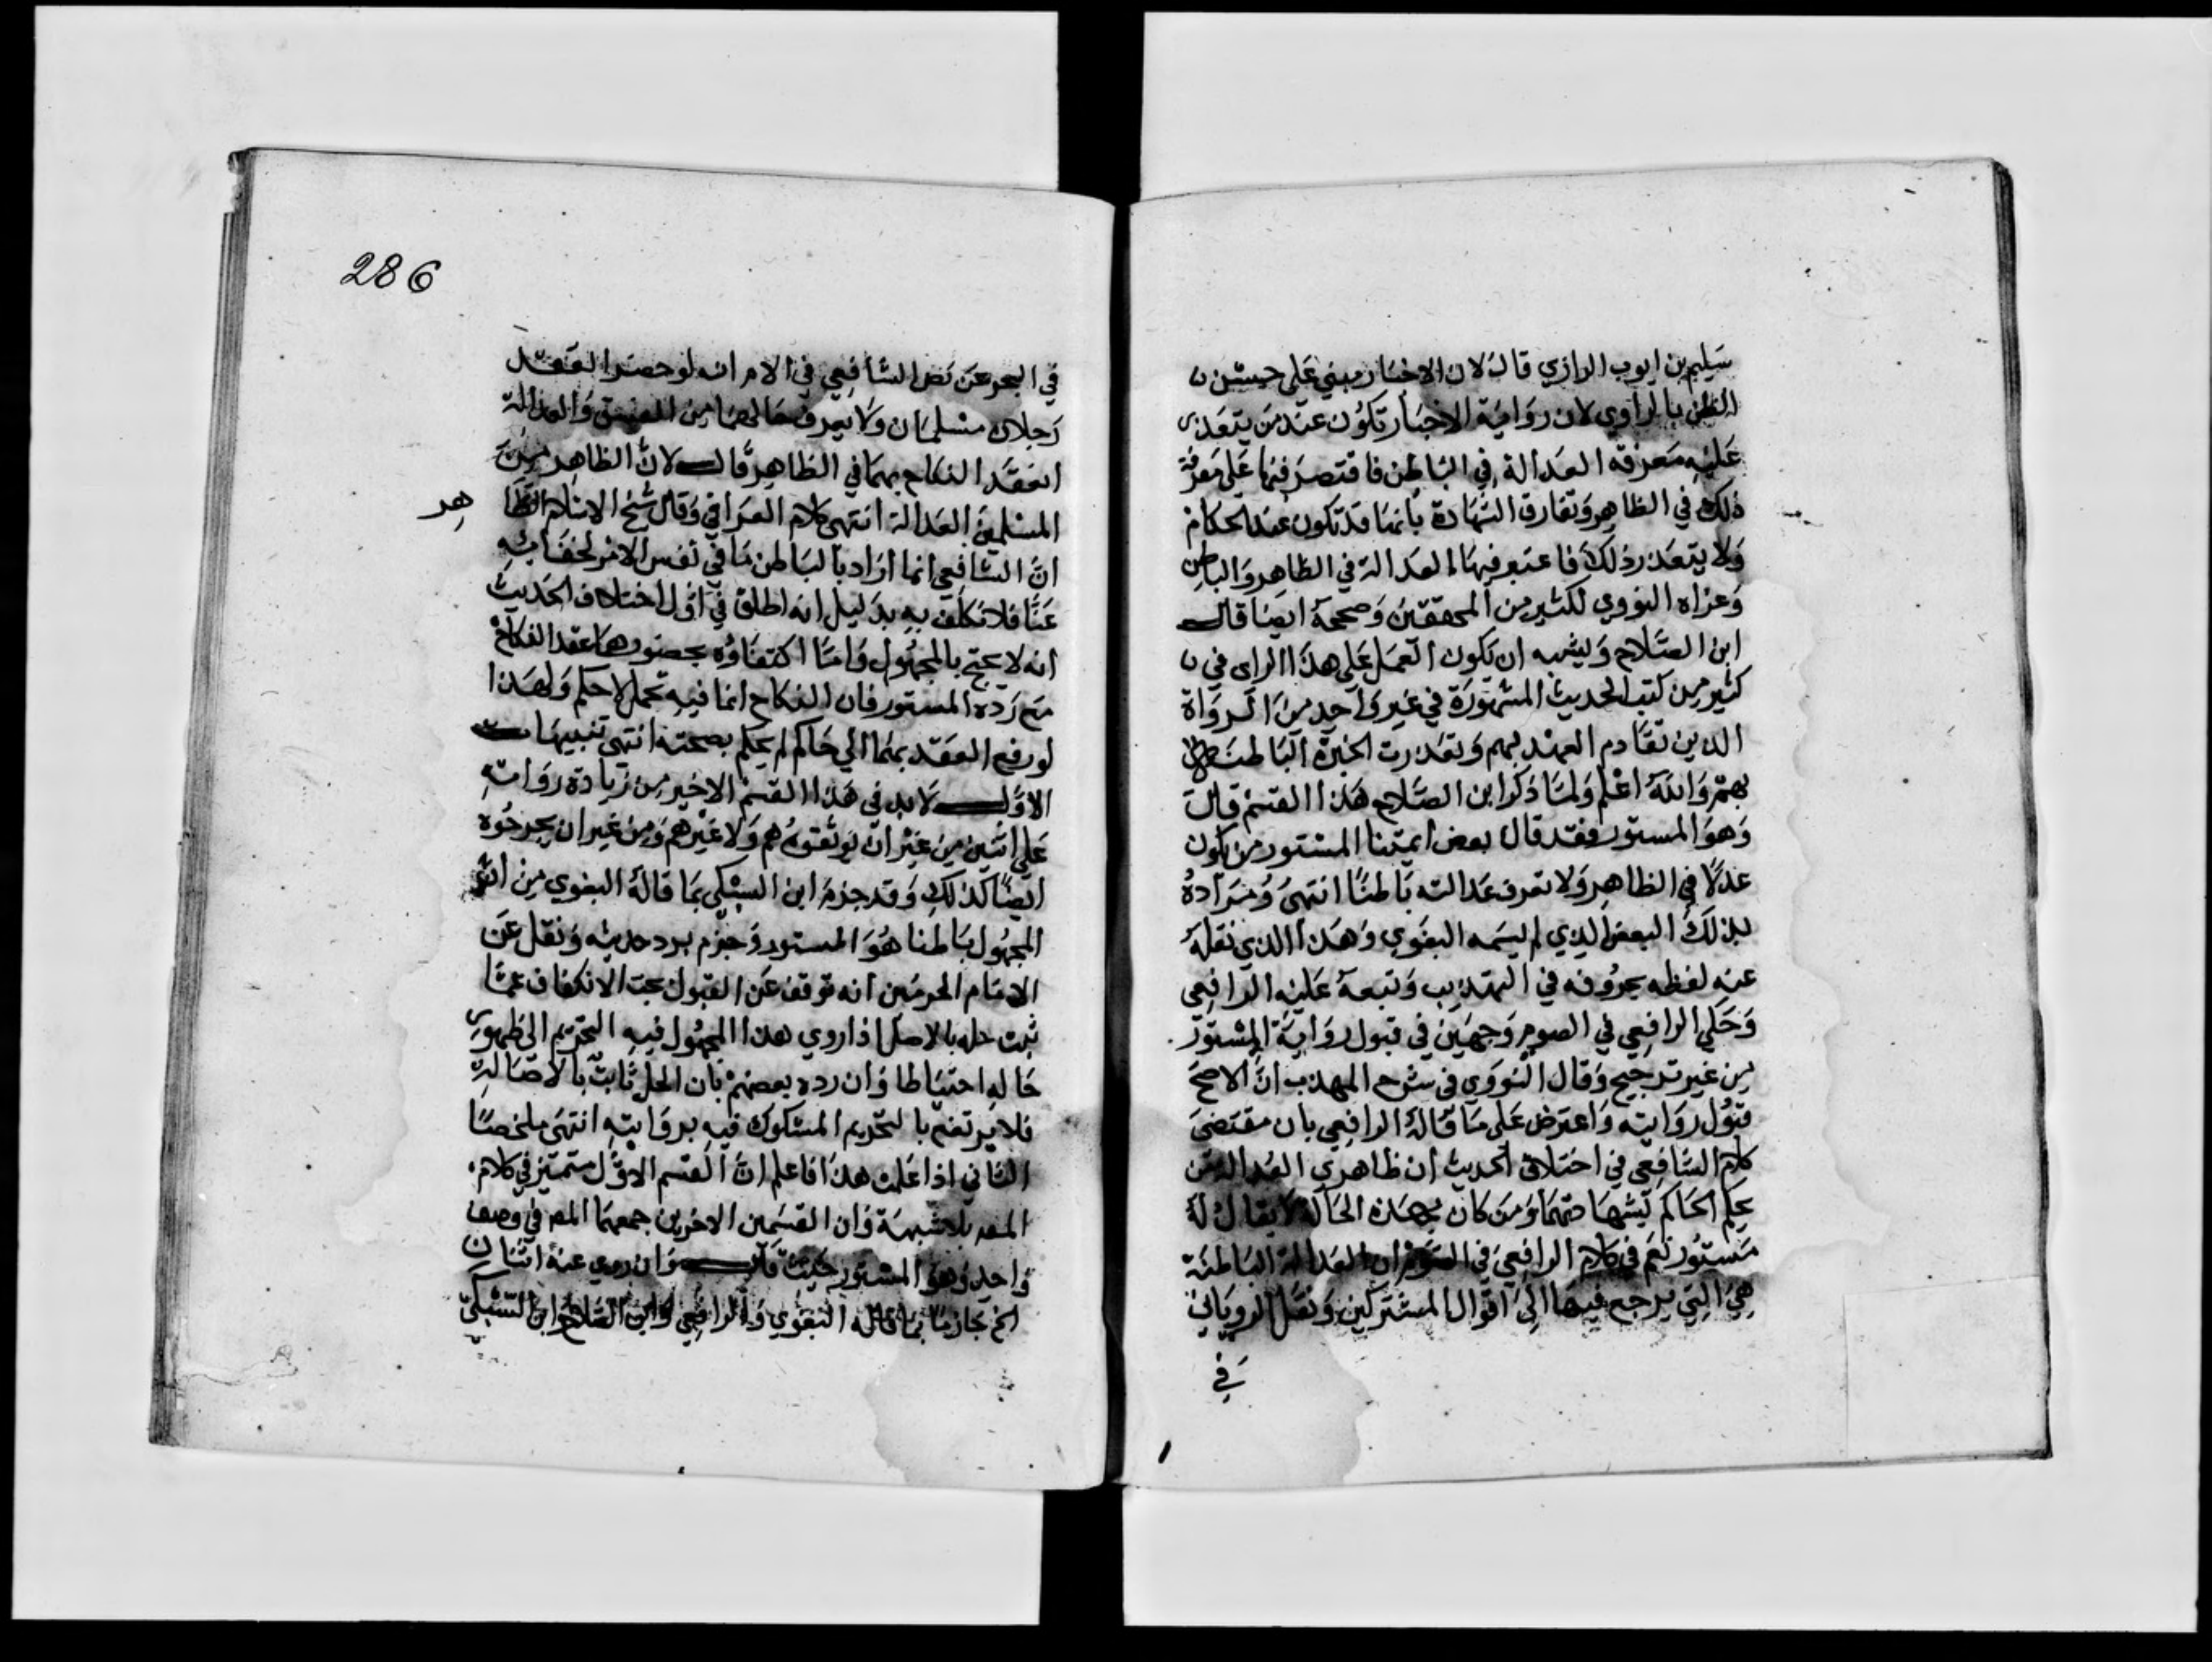 سليم بن ايوب الرازي قال لان الاخبار مبني على حسن
الظن بالراوي لان رواية الاخبار تكون عند من يتعذر
عليه معرفة العدالة في الباطن فاقتصر فيها على معرفة
ذلك في الظاهر وتفارق الشهادة بانها قد تكون عند الحكام
ولا يتعذر ذلك فاعتبر فيها العدالة في الظاهر والباطن
وعزاه النووي لكثير من المحققين وصححه ايضا قال
ابن الصلاح ويشبه ان يكون العمل على هذا الراي في
كثير من كتب الحديث المشهورة في غير واحد من الرواة
الذين تقادم العهد بهم وتعذرت الخبرة الباطنة
بهم والله اعلم ولما ذكر ابن الصلاح هذا القسم قال
وهو المستور فقد قال بعض ايمتنا المستور من يكون
عدلا في الظاهر ولا تعرف عدالته باطنا انتهى ومراده
بذلك البعض الذي لم يسمه البغوي وهذا الذي نقله
عنه لفظه بحروفه في التهذيب وتبعه عليه الرافعي
وحكي الرافعي في الصوم وجهين في قبول رواية المستور
من غير ترجيح وقال النووي في شرح المهذب ان الاصح
قبول روايته واعترض على ما قاله الرافعي بان مقتضى
كلام الشافعي في اختلاف الحديث ان ظاهري العدالة من
يحكم الحاكم بشهادتهما ومن كان بهذه الحالة لا يقال له
مستور نعم في كلام الرافعي في الصوم ان العدالة الباطنة
هي التي يرجع فيها الى اقوال المشتركين ونقل الروياني
في
286
في البحر عن نص الشافعي في الام انه لو حضر العقد
رجلان مسلمان ولا يعرف حالهما من الفسق والعدالة
انعقد النكاح بهما في الظاهر قال لان الظاهر من
المسلمين العدالة انتهى كلام العراقي وقال شيخ الاسلام الظا
هر
ان الشافعي انما اراد بالباطن ما في نفس الامر لخفائه
عنا فلا نكلف به بدليل انه اطلق في اول اختلاف الحديث
انه لا يحتج بالمجهول واما اكتفاؤه بحضورهما عقد النكاح
مع رده المستور فان النكاح انما فيه تحمل لا حكم ولهذا
لو رفع العقد بهما الي حاكم لم يحكم بصحته انتهى تنبيهات
الاول لا بد في هذا القسم الاخير من زيادة رواته
على اثنين من غير ان يوثقوه هم ولا غيرهم ومن غير ان يجرحوه
ايضا كذلك وقد جزم ابن السبكي بما قاله البغوي من ان
المجهول باطنا هو المستور وجزم برد حديثه ونقل عن
الامام الحرمين انه توقف عن القبول يجب الانكفاف عما
ثبت حله بالاصل اذا روي هذا المجهول فيه التحريم الى ظهور
حاله احتياطا وان رده بعضهم بان الحل ثابت بالاصالة
فلا يرتفع بالتحريم المشكوك فيه بروايته انتهى ملخصا
الثاني اذا علمت هذا فاعلم ان القسم الاول متميز في كلام
المصر بلا شبهة وان القسمين الاخرين جمعهما المصر في وصف
واحد وهو المستور حيث قال وان روي عنه اثنان
الخ جازما بما قاله البغوي والرافعي وابن الصلاح وابن السبكي